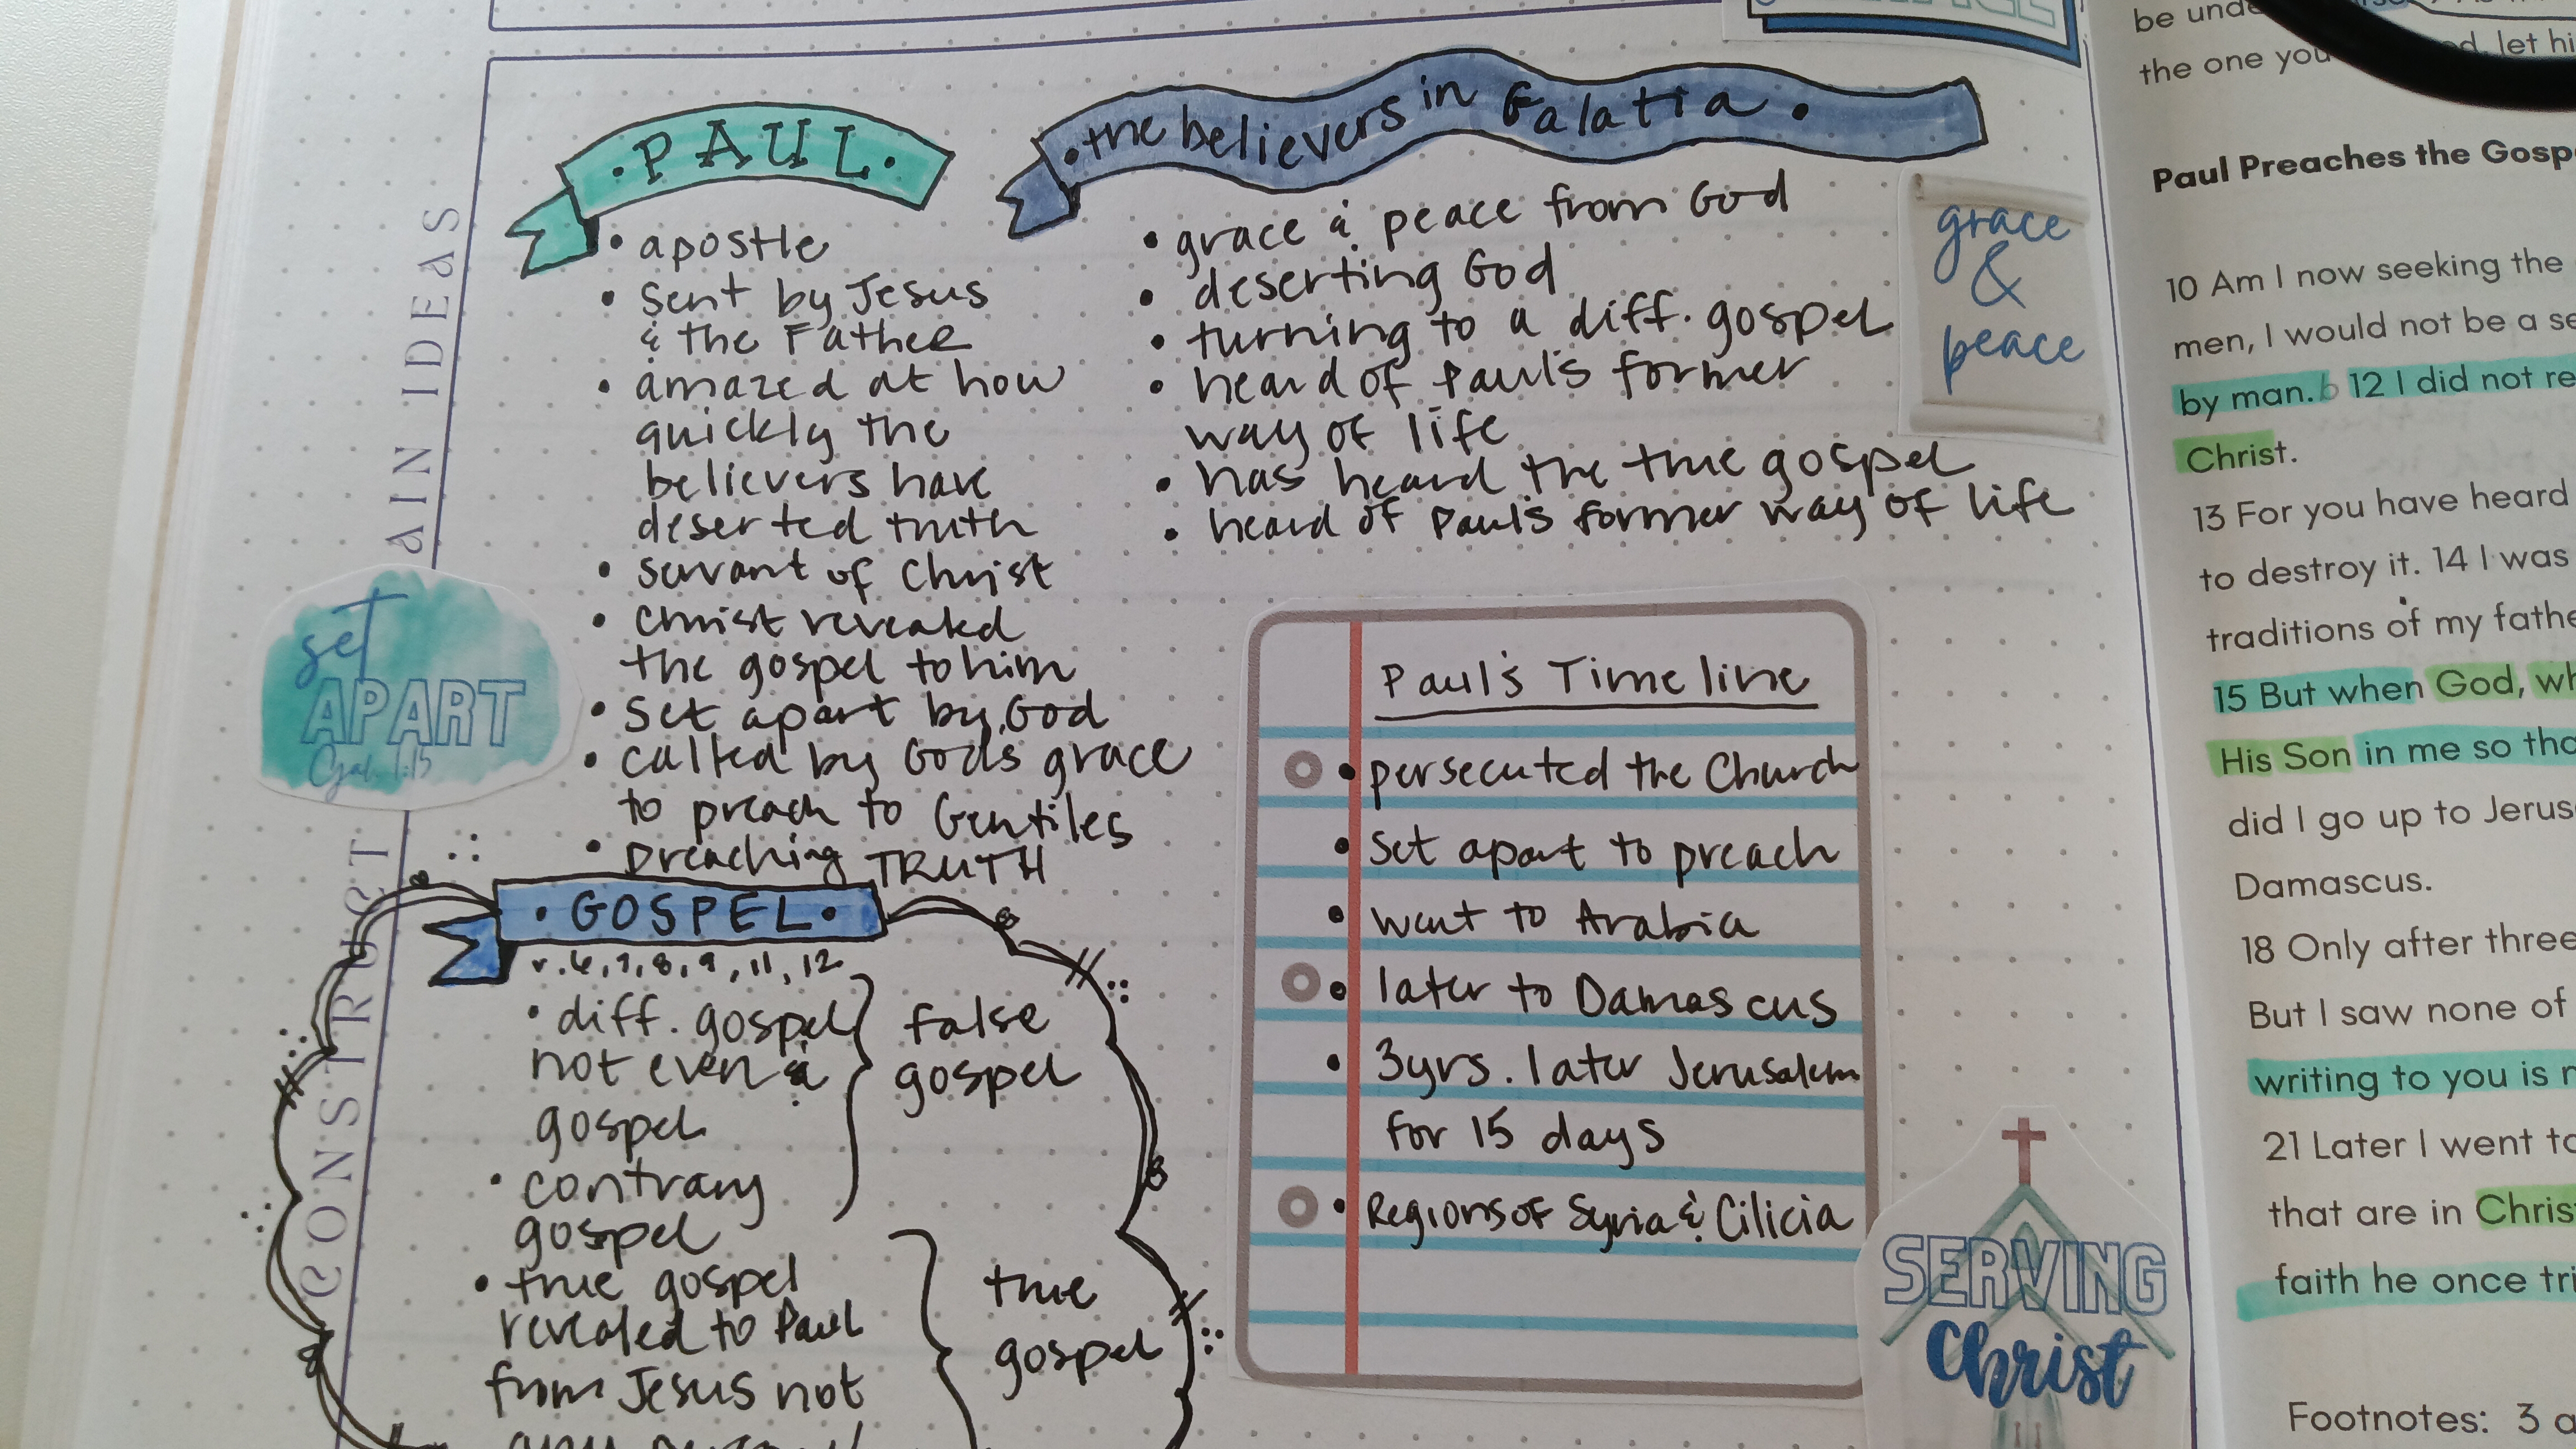 AIN IDEAS
CONSTRUCT
·PAUL·
• apostle
• sent by Jesus
& the Father
• amazed at how
quickly the
believers have
deserted truth
• servant of Christ
• Christ revealed
the gospel to him
• set apart by God
• called by God's grace
to preach to Gentiles
• preaching TRUTH
• the believers in Galatia •
• grace & peace from God
• deserting God
• turning to a diff. gospel
• heard of Paul's former
way of life
• has heard the true gospel
• heard of Paul's former way of life
grace
&
peace
set
APART
Gal. 1:15
• GOSPEL •
v. 6, 7, 8, 9, 11, 12
• diff. gospel
not even a
gospel
• contrary
gospel
false
gospel
• true gospel
revealed to Paul
from Jesus not
true
gospel
Paul's Timeline
• persecuted the Church
• set apart to preach
• went to Arabia
• later to Damascus
• 3yrs. later Jerusalem
for 15 days
• Regions of Syria & Cilicia
SERVING
Christ
be unde
the one you
d, let hi
Paul Preaches the Gosp
10 Am I now seeking the
men, I would not be a se
by man. b 12 I did not re
Christ.
13 For you have heard
to destroy it. 14 I was
traditions of my fathe
15 But when God, wh
His Son in me so tha
did I go up to Jerus
Damascus.
18 Only after three
But I saw none of
writing to you is n
21 Later I went to
that are in Chris
faith he once tri
Footnotes: 3 a